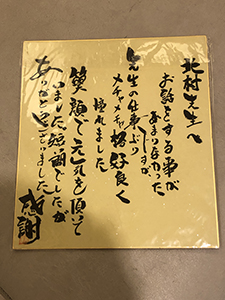 北村先生へ
お話とする事が
あまりなかった
ですが、
先生の仕事ぶり
メチャメチャ格好良く
憧れました
笑顔で元気を頂いて
いました短い間でしたが
ありがとうございました
感謝